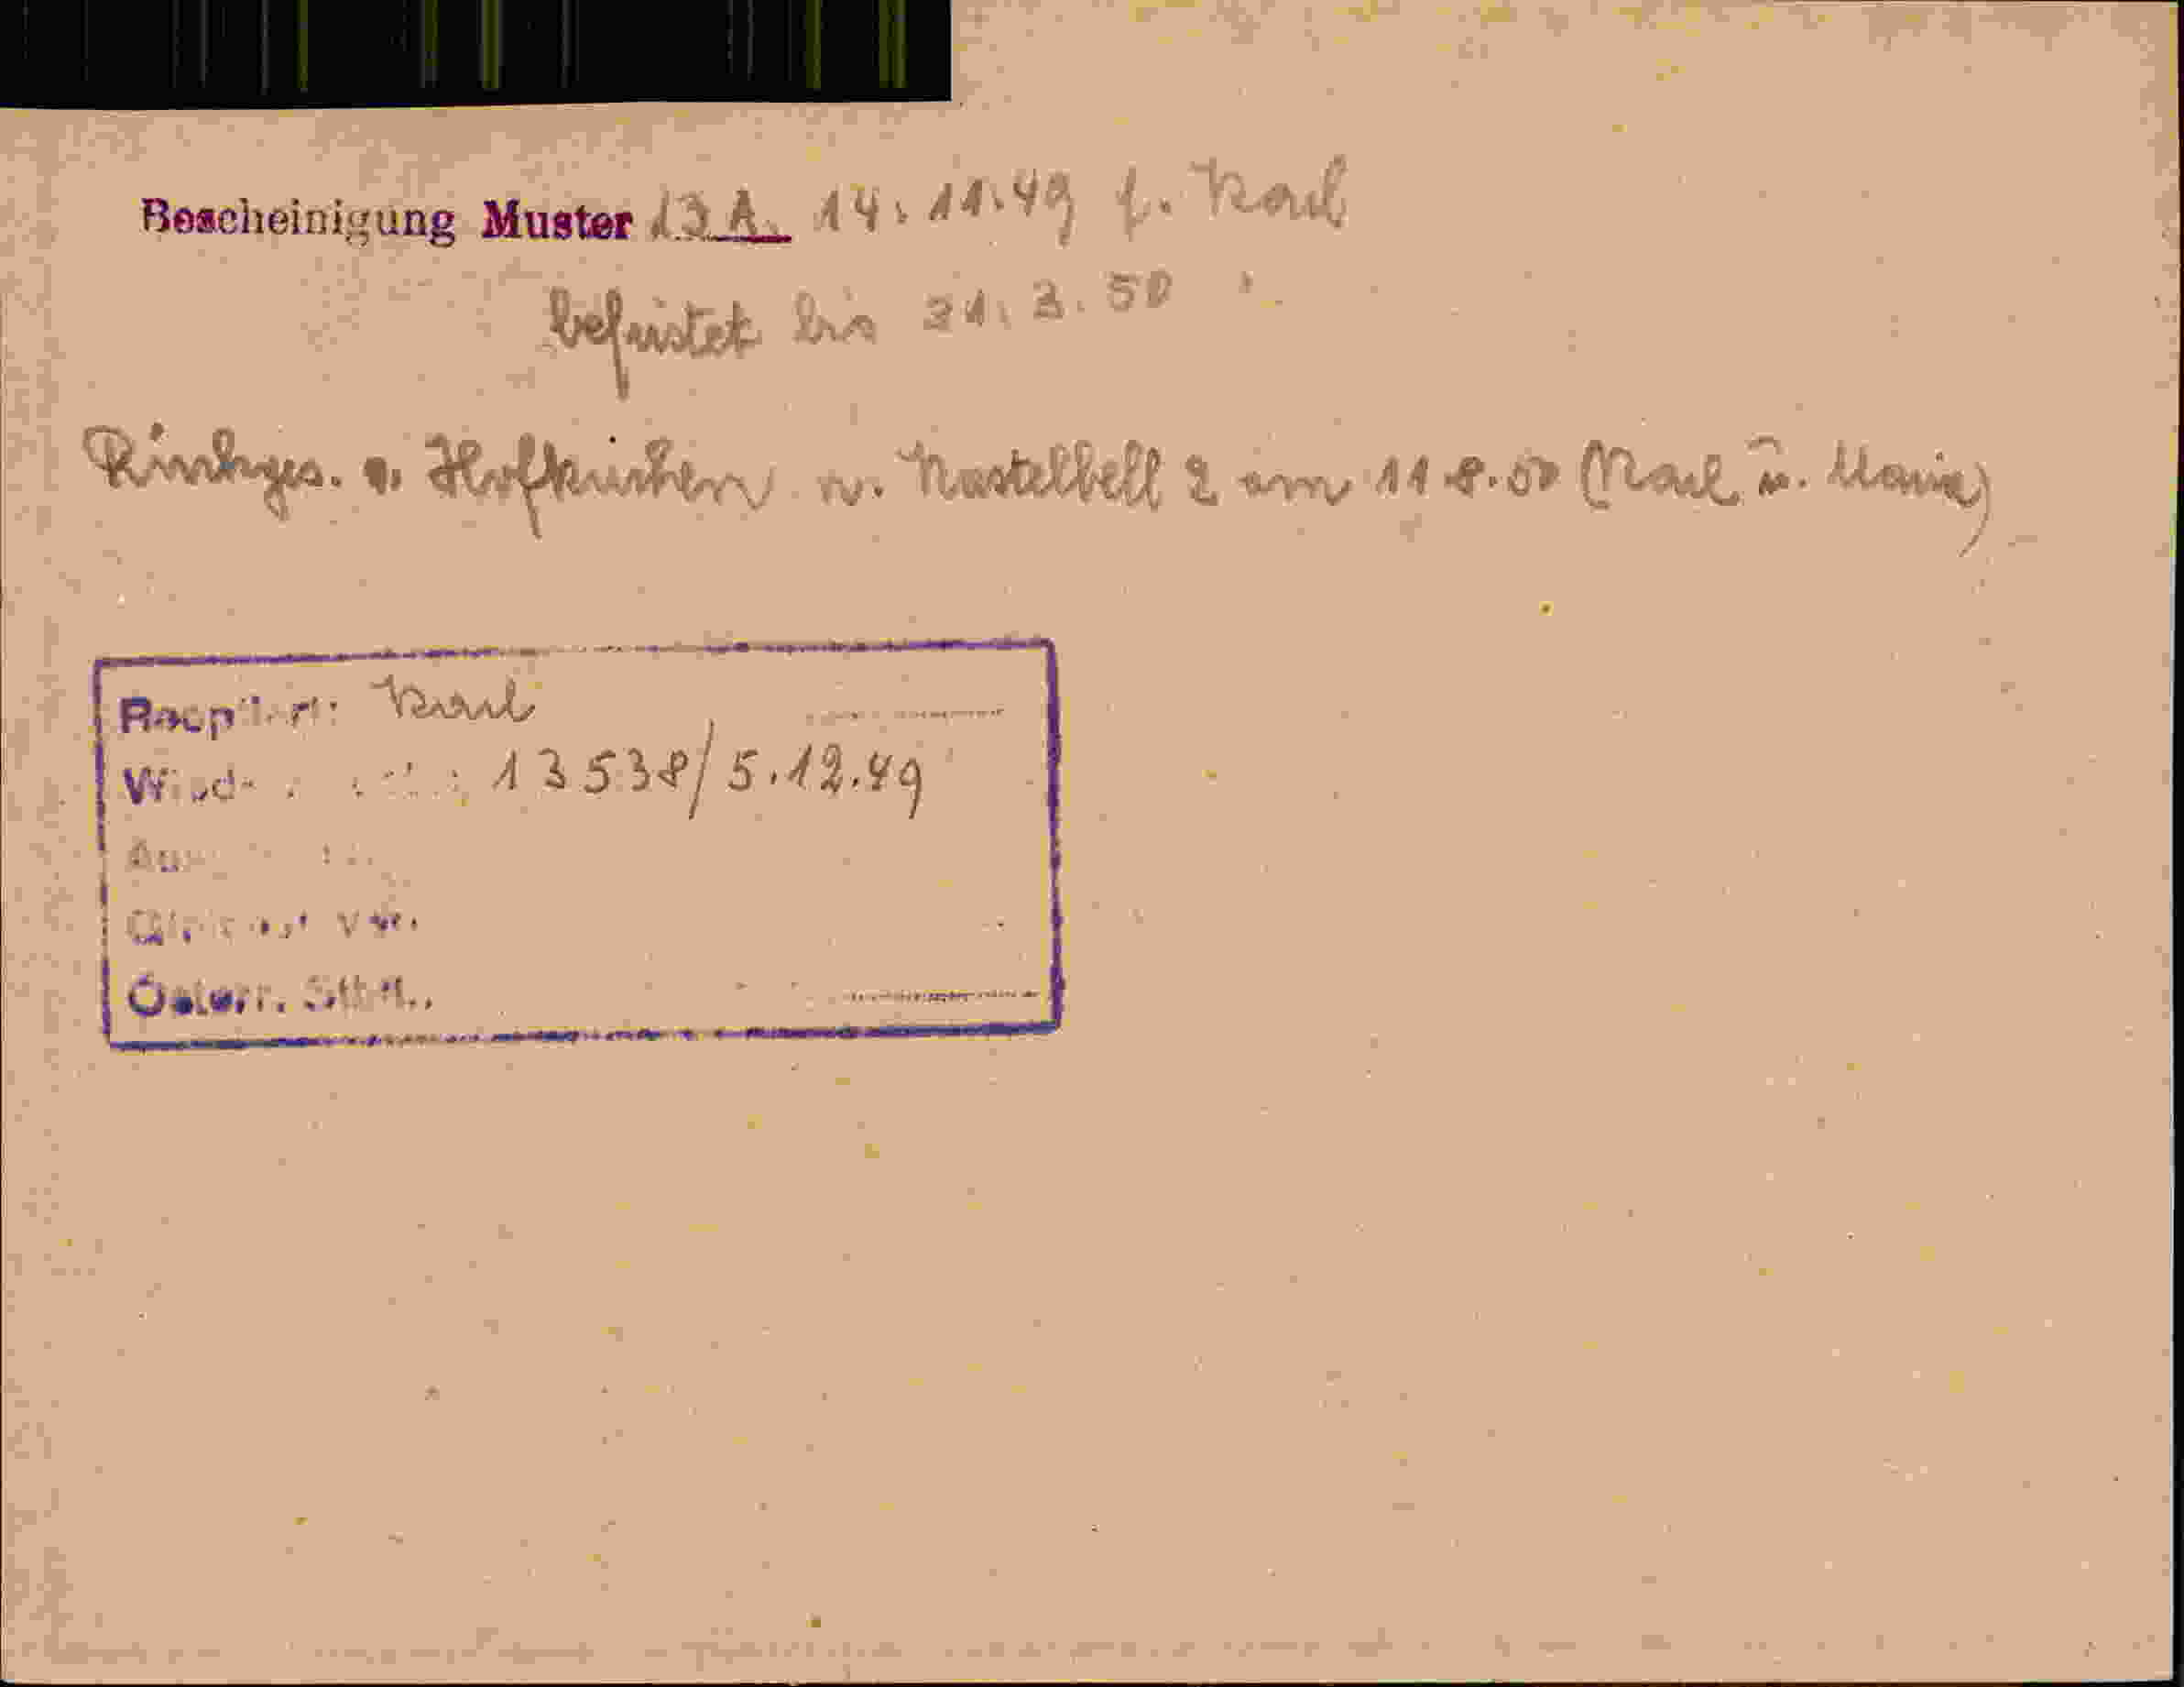 Bescheinigung Muster 13 A. 14. 11. 49 f. Karl
befristet bis 31. 3. 50
Rückges. v. Hofkirchen n. Kastelbell 2 am 11.8.50 (Karl u. Maria)
Karl
13538/5.12.49
Österr.